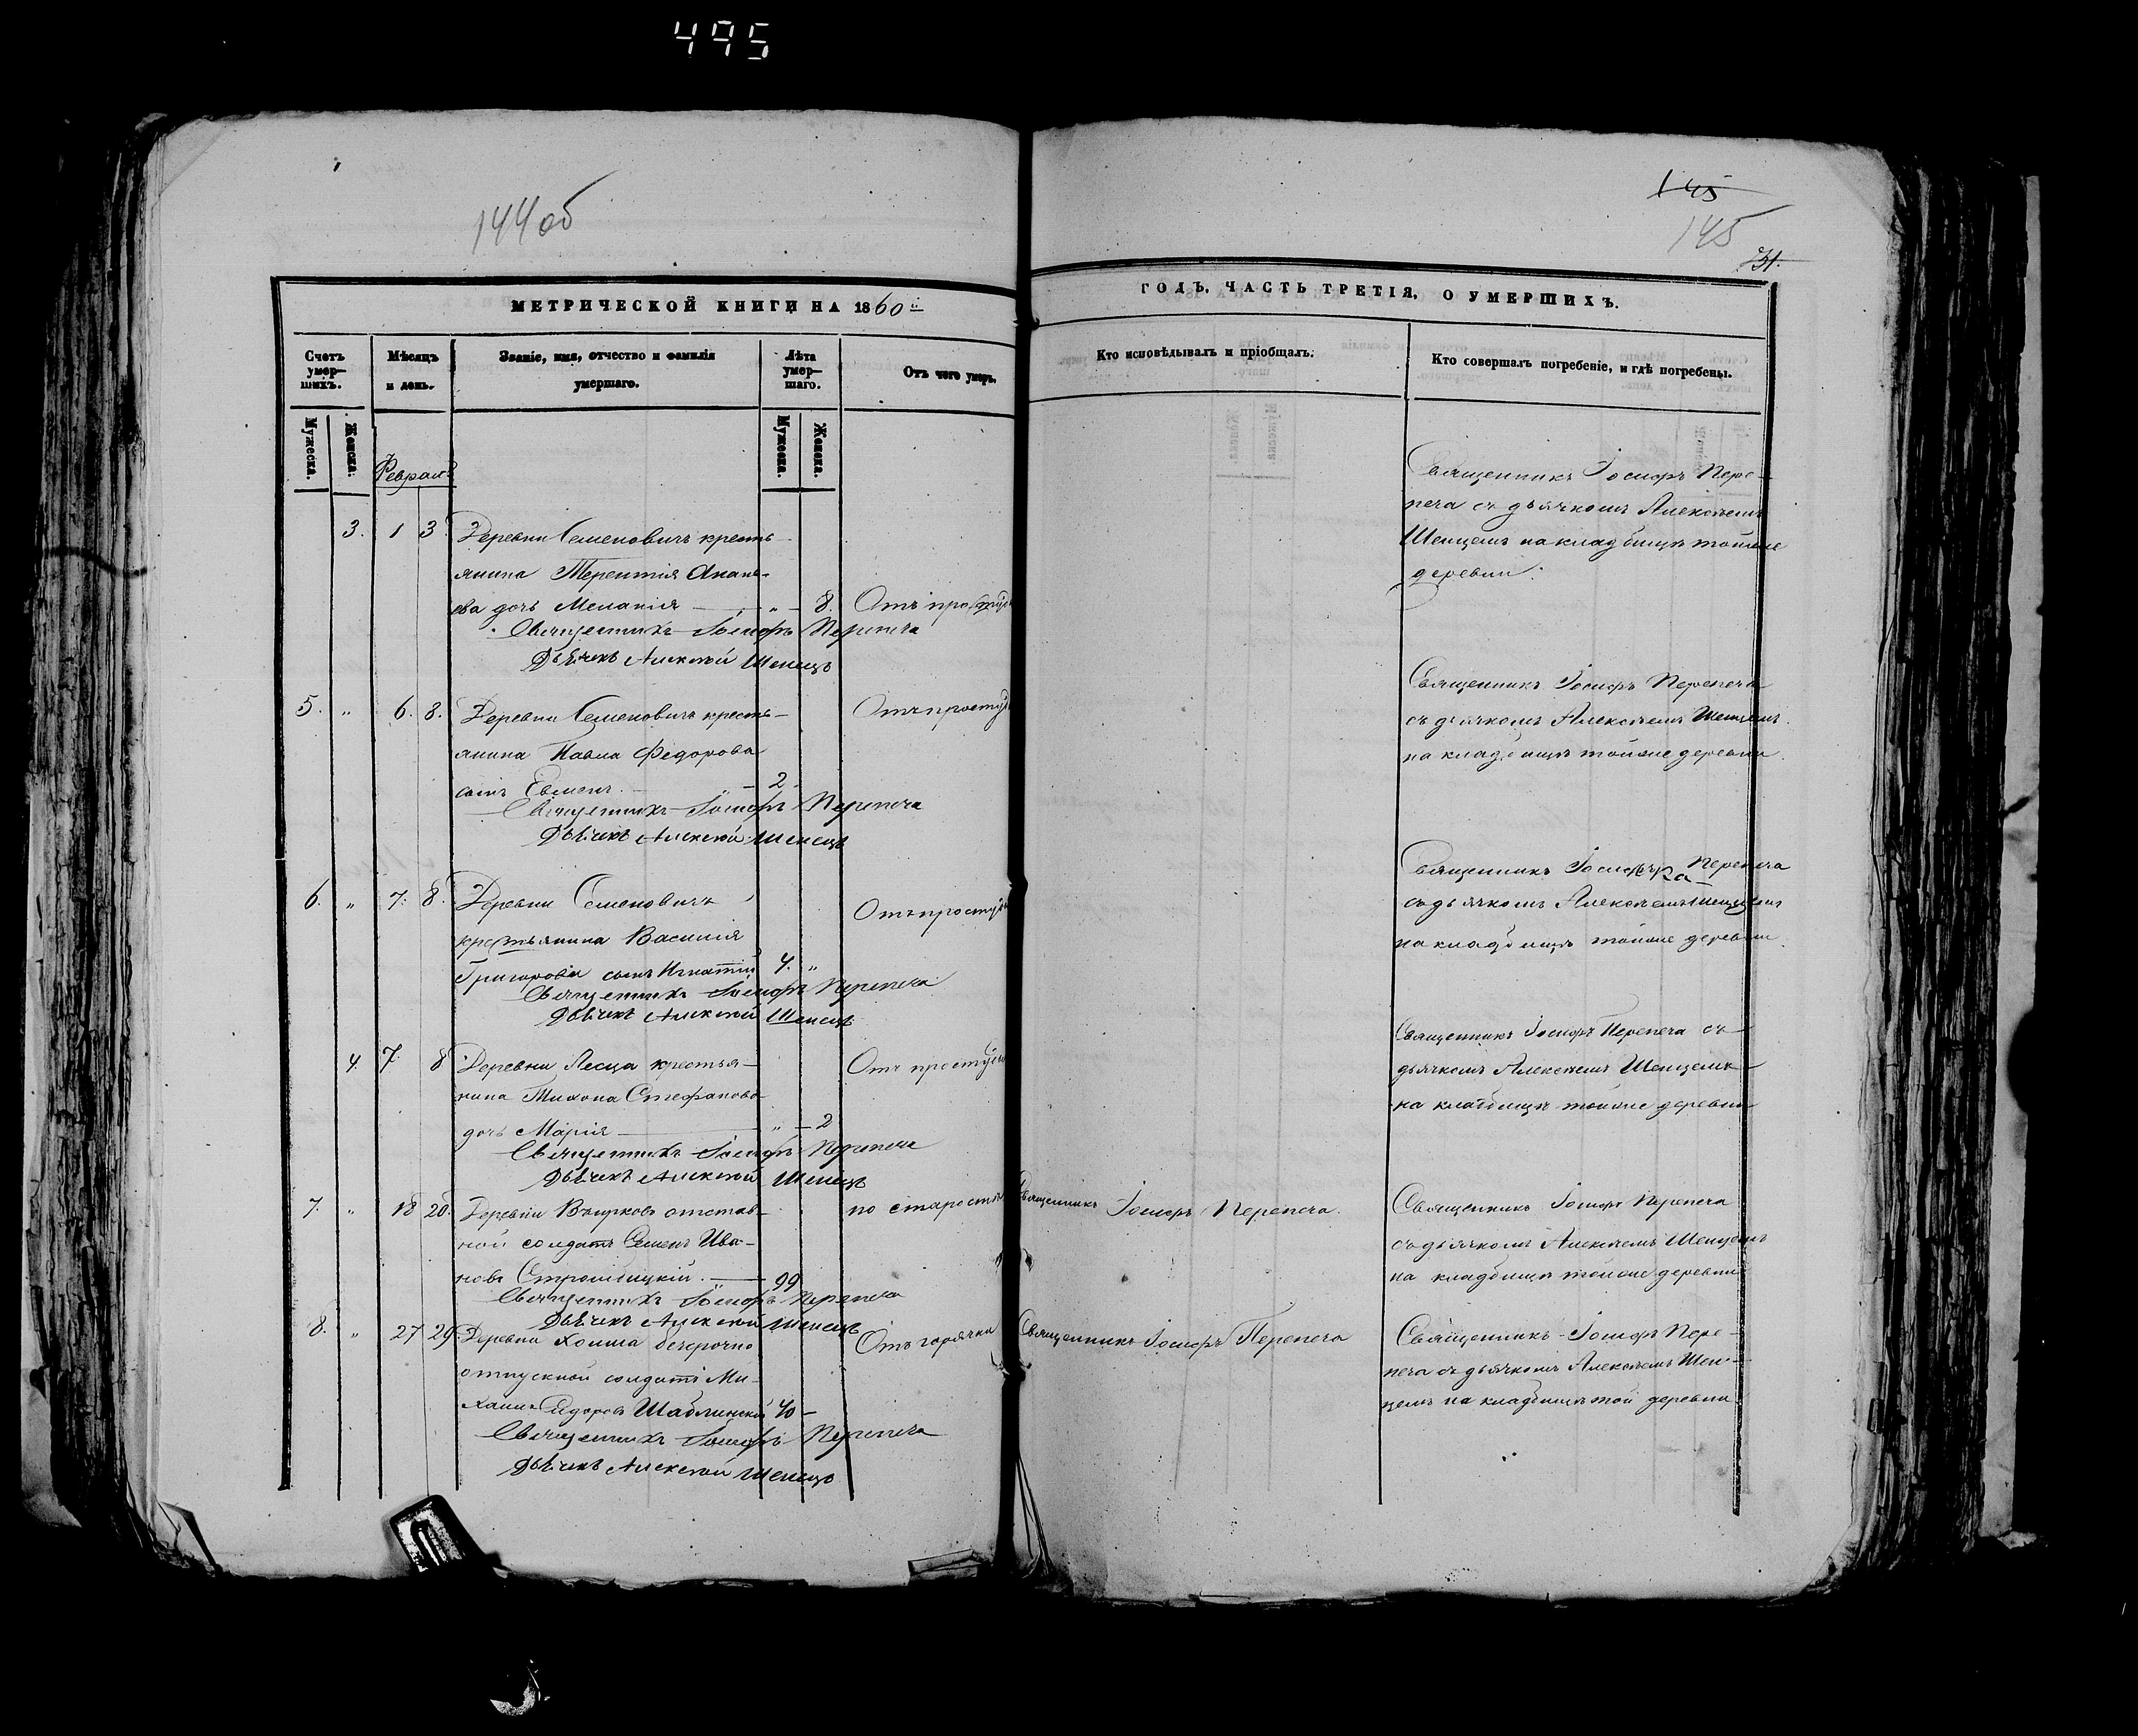 495
144об
145
145
31.
МЕТРИЧЕСКОЙ КНИГИ НА 1860й
ГОДЪ, ЧАСТЬ ТРЕТІЯ, О УМЕРШИХЪ.
Счетъ умер-шихъ.
Мѣсяцъ и день.
Званіе, имя, отчество и фамилія умершаго.
Лѣта умер-шаго.
Отъ чего умеръ.
Кто исповѣдывалъ и пріобщалъ.
Кто совершалъ погребеніе, и гдѣ погребены.
Мужеска.
Женска.
Мужеска.
Женска.
Февраль
3. 1 3 Деревни Семеновичъ кресть-
янина Терентія Анань-
ева дочь Меланія — „ — 8. Отъ простуды
Священникъ Іосифъ Перепеча
Дьячекъ Алексѣй Шенецъ
Священникъ Іосифъ Пере-
печа съ дьячкомъ Алексѣемъ
Шенцемъ на кладбищѣ тойже
деревни.
5. „ 6. 8. Деревни Семеновичъ кресть-
янина Павла Федорова
сынъ Евменъ. — 2 Отъ простуды
Священникъ Іосифъ Перепеча
Дьячекъ Алексѣй Шенецъ
Священникъ Іосифъ Перепеча
съ дьячкомъ Алексѣемъ Шенцемъ
на кладбищѣ тойже деревни.
6. „ 7. 8. Деревни Семеновичъ
крестьянина Василія
Григорова сынъ Игнатій 4. „ Отъ простуды
Священникъ Іосифъ Перепеча
Дьячекъ Алексѣй Шенецъ
Священникъ Іосифъ Перепеча
съ дьячкомъ Алексѣемъ Шенцемъ
на кладбищѣ тойже деревни.
4. 7. 8 Деревни Песца крестья-
нина Тихона Стефанова
дочь Марія — „ — 2 Отъ простуды
Священникъ Іосифъ Перепеча
Дьячекъ Алексѣй Шенецъ
Священникъ Іосифъ Перепеча съ
дьячкомъ Алексѣемъ Шенцемъ
на кладбищѣ тойже деревни
7. „ 18 20. Деревни отстав-
ной солдатъ Семенъ Ива-
новъ — 99 по старости
Священникъ Іосифъ Перепеча
Дьячекъ Алексѣй Шенецъ
Священникъ Іосифъ Перепеча.
Священникъ Іосифъ Перепеча
съ дьячкомъ Алексѣемъ Шенцемъ
на кладбищѣ тойже деревни
8. „ 27 29. Деревни Холма безсрочно
отпускной солдатъ Ми-
хаилъ Сидоровъ Шаблинскій 40 — Отъ горячки
Священникъ Іосифъ Перепеча
Дьячекъ Алексѣй Шенецъ
Священникъ Іосифъ Перепеча
Священникъ Іосифъ Пере-
печа съ дьячкомъ Алексѣемъ Шен-
цемъ на кладбищѣ той деревни